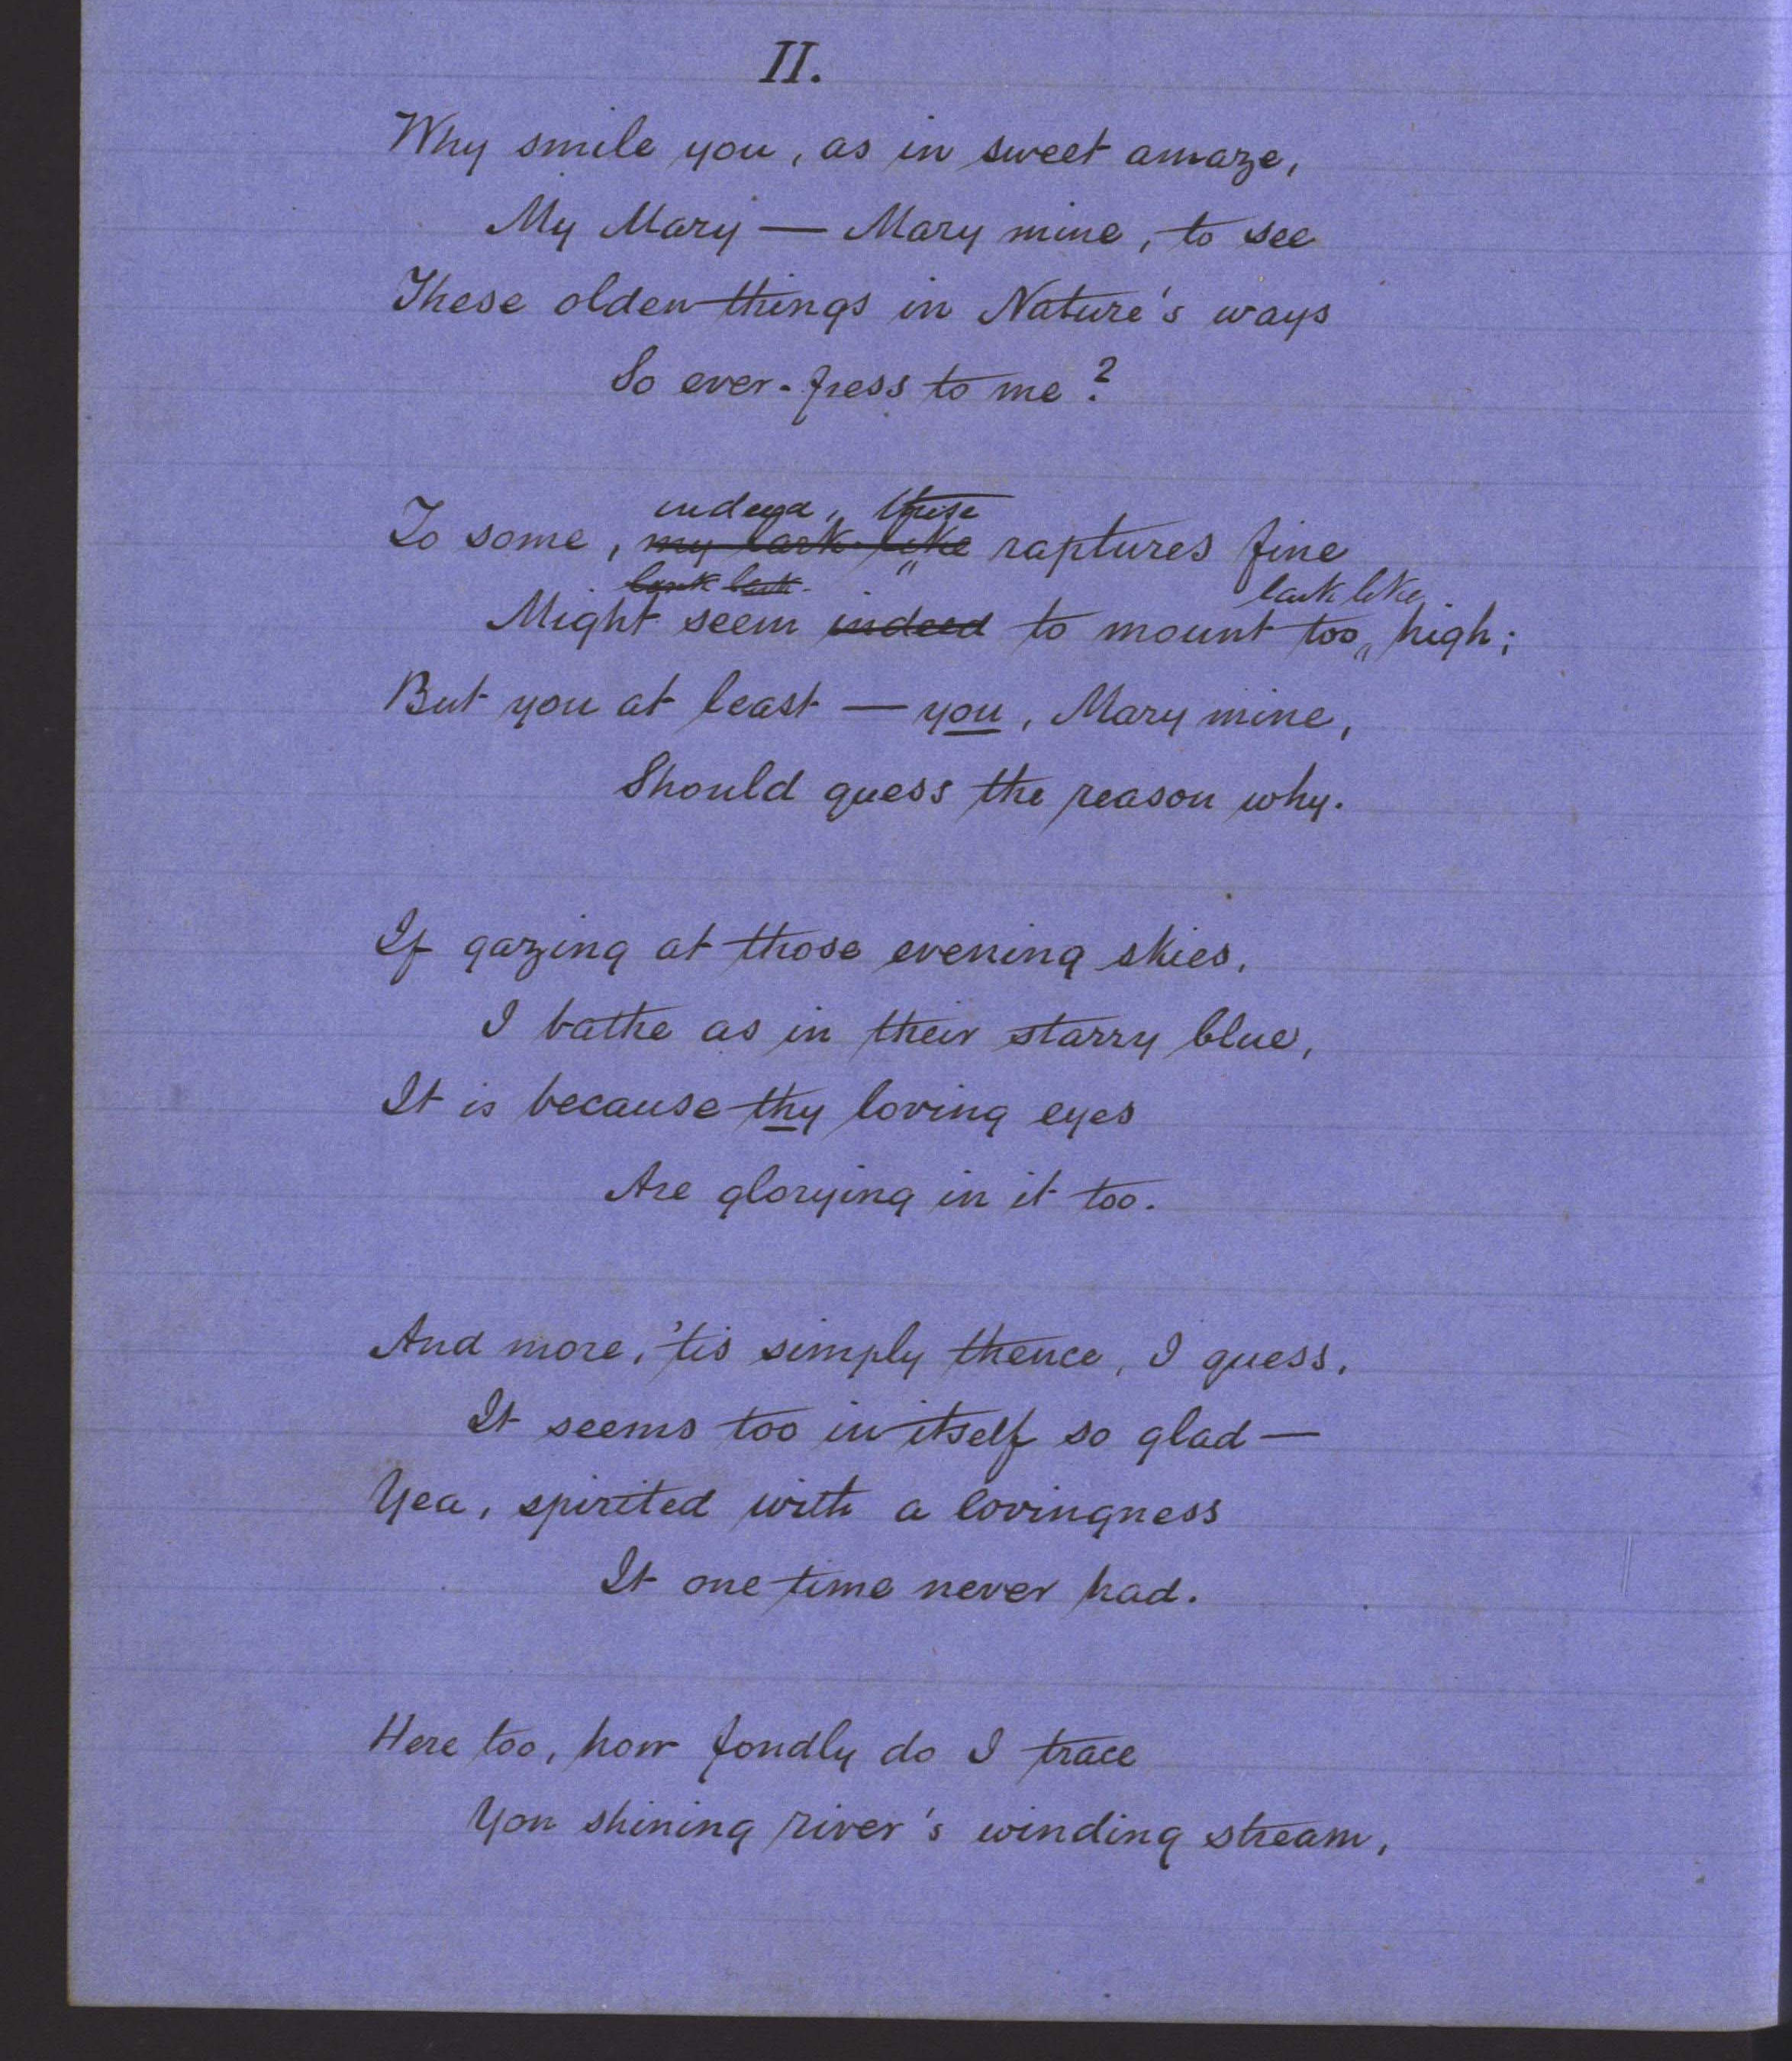 II.
Why smile you, as in sweet amaze,
My Mary — Mary mine, to see
These olden things in Nature's ways
So ever-fress to me?
indeed, these
To some, my lark-like raptures fine
lark lark- lark like
Might seem indeed to mount too high;
But you at least — you, Mary mine,
Should guess the reason why.
If gazing at those evening skies,
I bathe as in their starry blue,
It is because thy loving eyes
Are glorying in it too.
And more, 'tis simply thence, I guess,
It seems too in itself so glad —
Yea, spirited with a lovingness
It one time never had.
Here too, how fondly do I trace
Yon shining river's winding stream,